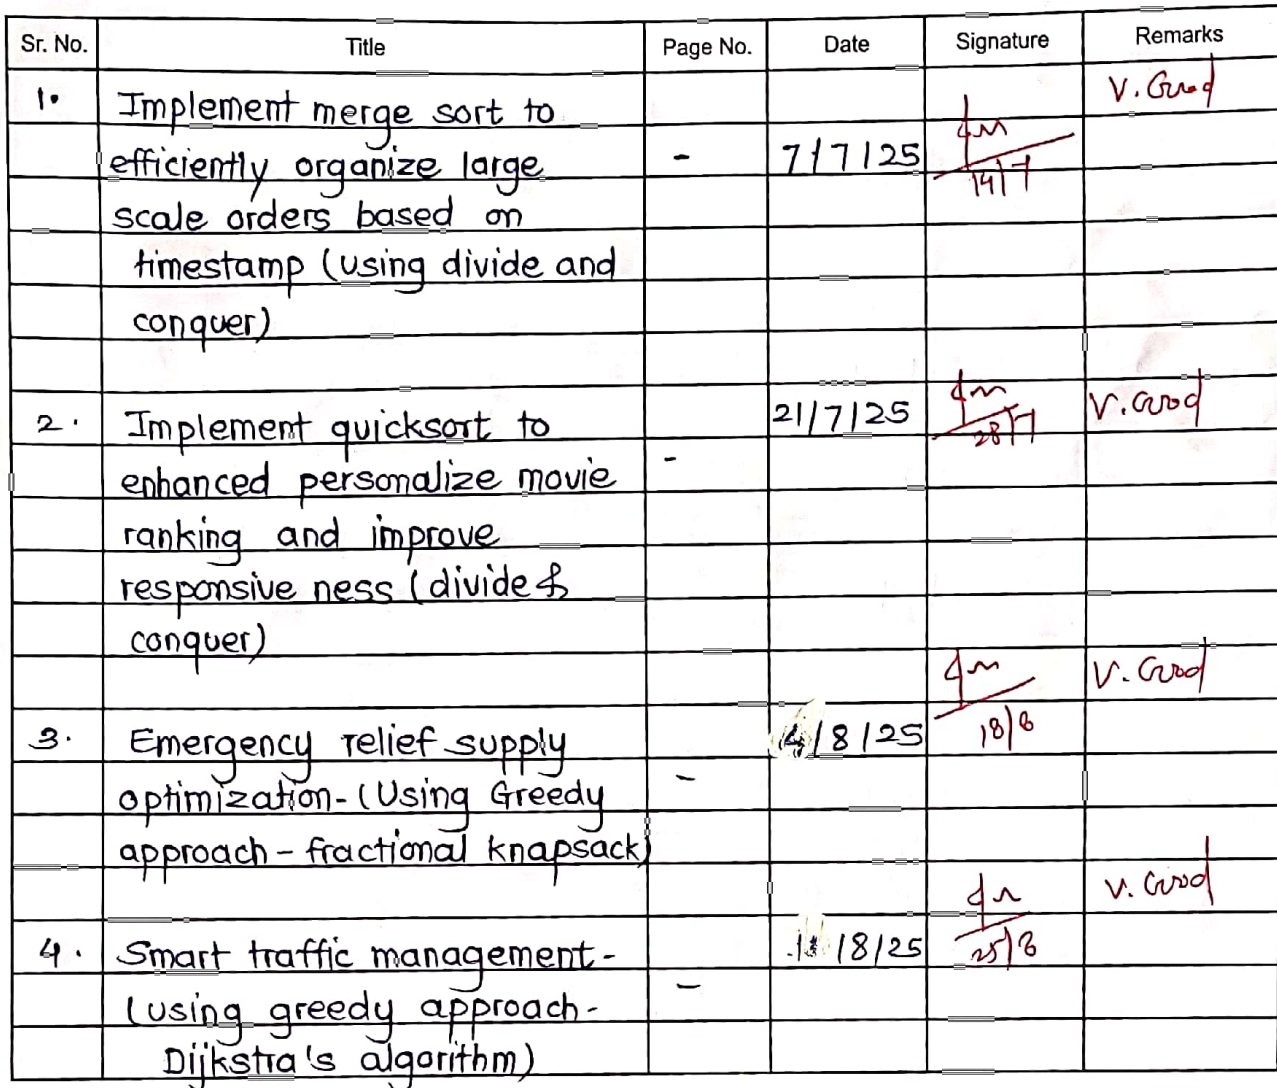 Sr. No. Title Page No. Date Signature Remarks
1. Implement merge sort to V. Good
efficiently organize large - 7/7/25 14/7
scale orders based on
timestamp (using divide and
conquer)
2. Implement quicksort to 21/7/25 28/7 V. Good
enhanced personalize movie -
ranking and improve
responsive ness (divide &
conquer)
V. Good
3. Emergency relief supply 4/8/25 18/8
optimization - (Using Greedy -
approach - fractional knapsack)
V. Good
4. Smart traffic management - /8/25 25/8
(using greedy approach - -
Dijkstra's algorithm)